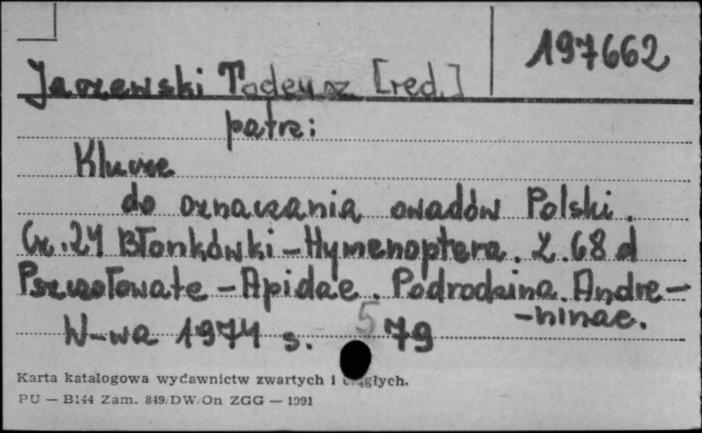 197662
Jaczewski Tadeusz [red.]
patrz:
Klucze
do oznaczania owadów Polski.
Cz. 24 Błonkówki - Hymenoptera. Z. 68 d
Pszczołowate - Apidae. Podrodzina. Andre-
-ninae.
W-wa 1974 s. 579
Karta katalogowa wydawnictw zwartych i ciągłych.
PU — B144 Zam. 849/DW/On ZGG — 1991